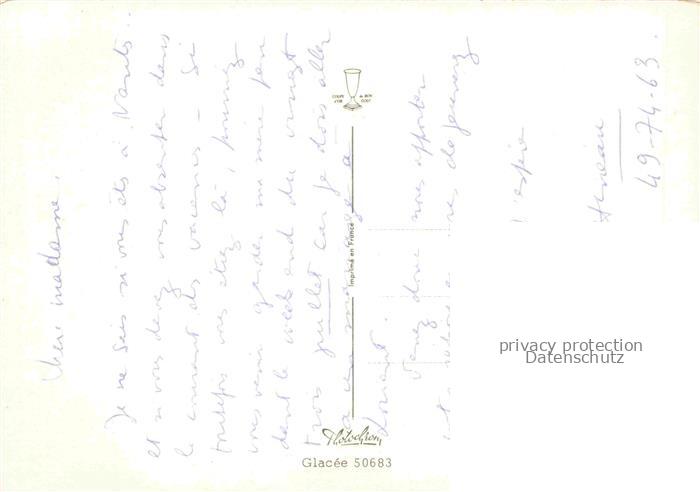 Chère madame.
Je ne sais si vous êtes à Nantes..
et si vous devez vous absenter dans
le courant des vacances - Si
toutefois vous étiez là, pourriez
vous venir garder ma mère pen
dant le week end du vingt
trois juillet car je dois aller
à un mariage à
Lorient.
Venez donc nous apporter
de
J'espère
49-74-63.
COUPE D'OR du BON GOUT
Imprimé en France
Photochrom
Glacée 50683
privacy protection
Datenschutz